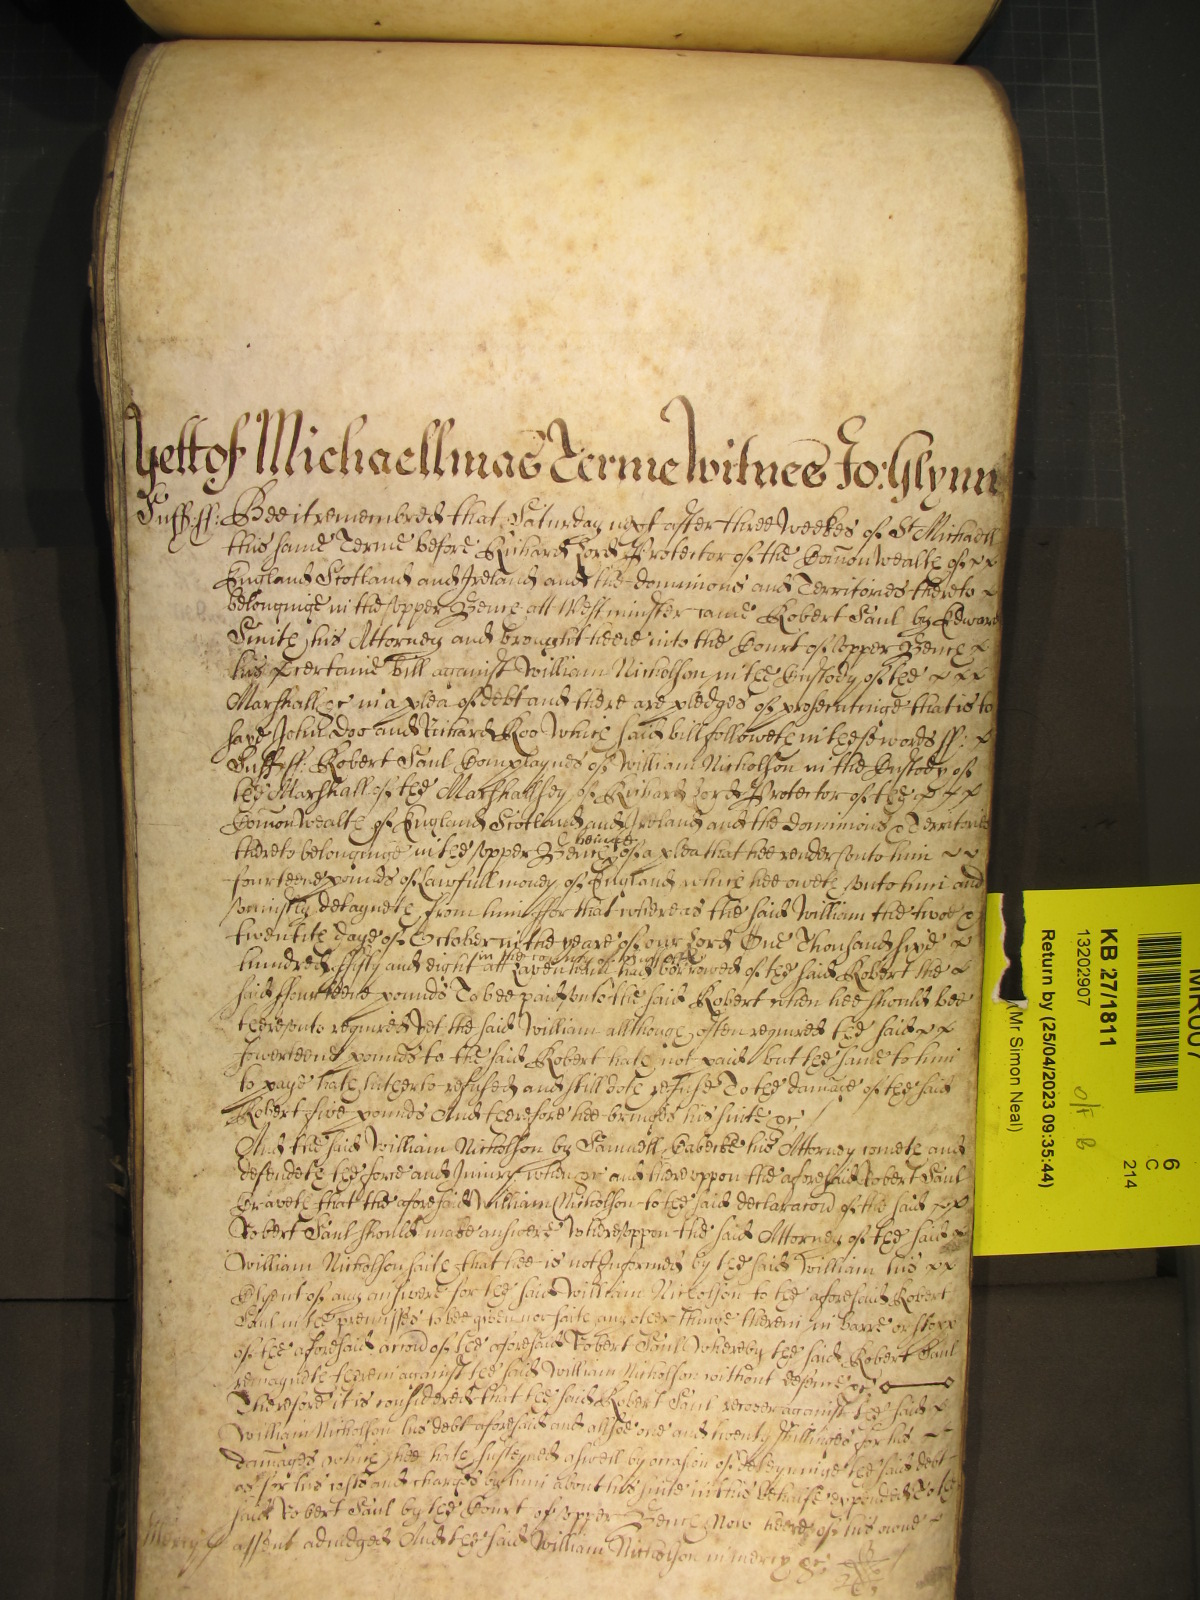 Yett of Michaellmas Terme Witnes Jo: Glynn
Suff: ff: Bee it remembred that Saturday next after three weekes of St Michaell
this same Terme before Richard Lord Protector of the Comon Wealth of
England Scotland and Ireland and the dominions and Territories thereto
belonginge in the upper Bench att Westminster came Robert Saul by Edward
Smith his Attorney and brought heere into the Court of upper Bench
his certaine bill against William Nicholson in the Custody of the
Marshall &c in a plea of debt and there are pledges of prosecutinge that is to
saye John Doo and Richard Roo which said bill followeth in these words ff:
Suff: ff: Robert Saul Complaynes of William Nicholson in the Custody of
the Marshall of the Marshallsey of Richard Lord Protector of the
Comon Wealth of England Scotland and Ireland and the dominions & Territories
thereto belonginge in the upper Bench beinge of a plea that hee render unto him
fourteene pounds of lawfull money of England which hee oweth unto him and
uniustly detayneth from him ffor that whereas the said William the twoe &
twentith daye of October in the yeare of our Lord One Thousand sixe
hundred ffifty and eight att Lavenham in the county had borrowed of the said Robert the
said ffourteene pounds To bee paid unto the said Robert when hee should bee
thereunto required Yet the said William allthough often required the said
fowerteene pounds to the said Robert hath not paid but the same to him
to paye hath hitherto refused and still doth refuse To the damage of the said
Robert five pounds And therefore hee bringes his suite &c
And the said William Nicholson by Samuell his Attorney cometh and
defendeth the force and Iniury when &c and thereuppon the aforesaid Robert Saul
Craveth that the aforesaid William Nicholson to the said declaracon of the said
Robert Saul should make answere Whereuppon the said Attorney of the said
William Nicholson saith that hee is not Informed by the said William his
Clyent of any answere for the said William Nicholson to the aforesaid Robert
Saul in the premisses to bee given nor saith any other thinge therein in barre or stopp
of the aforesaid accon of the aforesaid Robert Saul Whereby the said Robert Saul
remayneth therein against the said William Nicholson without defence &c
Therefore it is considered that the said Robert Saul recover against the said
William Nicholson his debt aforesaid and allsoe one and twenty shillinges for his
damages which hee hath susteyned aswell by occasion of deteyninge the said debt
as for his costs and charges by him about his suite in this behalfe expended To the
said Robert Saul by the Court of upper Bench Now heere of his owne
Mercy assent adiudged And the said William Nicholson in mercy &c
KB 27/1811
13202907
Return by (25/04/2023 09:35:44)
(Mr Simon Neal)
6
C
214